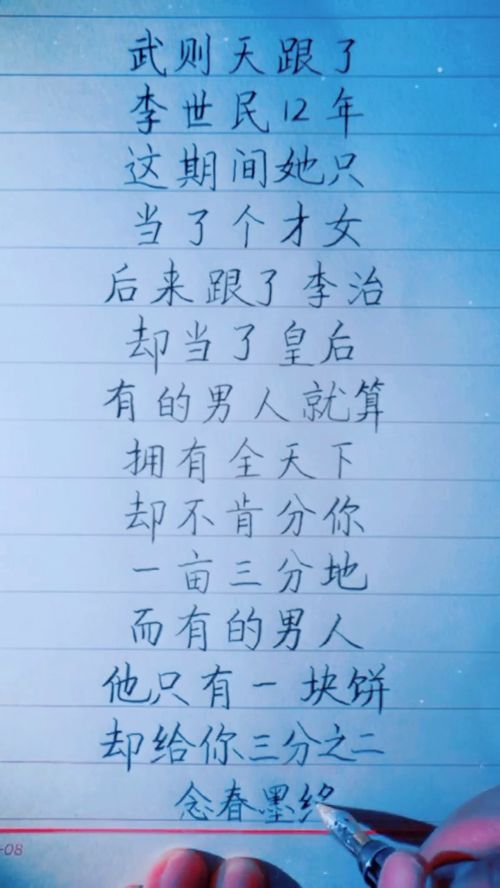 武则天跟了
李世民12年
这期间她只
当了个才女
后来跟了李治
却当了皇后
有的男人就算
拥有全天下
却不肯分你
一亩三分地
而有的男人
他只有一块饼
却给你三分之二
念春墨
-08